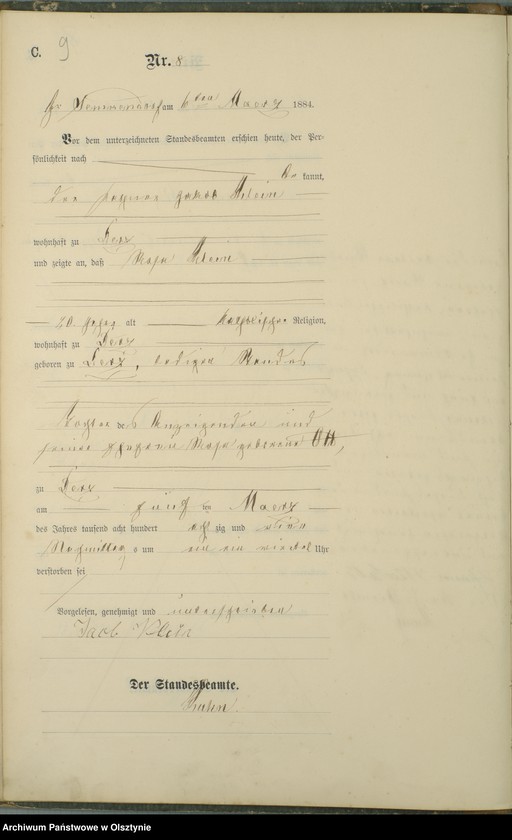 C. 9
Nr. 8
am 6ten Maerz 1884.
Vor dem unterzeichneten Standesbeamten erschien heute, der Per-
sönlichkeit nach
be kannt,
der Jakob Klein
wohnhaft zu Derz
und zeigte an, daß Rosa Klein
20 Jahre alt katholischer Religion,
wohnhaft zu Derz
geboren zu Derz, ledigen Standes
Tochter des Anzeigenden und
seiner Ehefrau Rosa geborene Ott,
zu Derz
am fünf ten Maerz
des Jahres tausend acht hundert acht zig und vier
Nachmittag s um ein ein viertel Uhr
verstorben sei
Vorgelesen, genehmigt und unterschrieben
Jacob Klein
Der Standesbeamte.
Archiwum Państwowe w Olsztynie